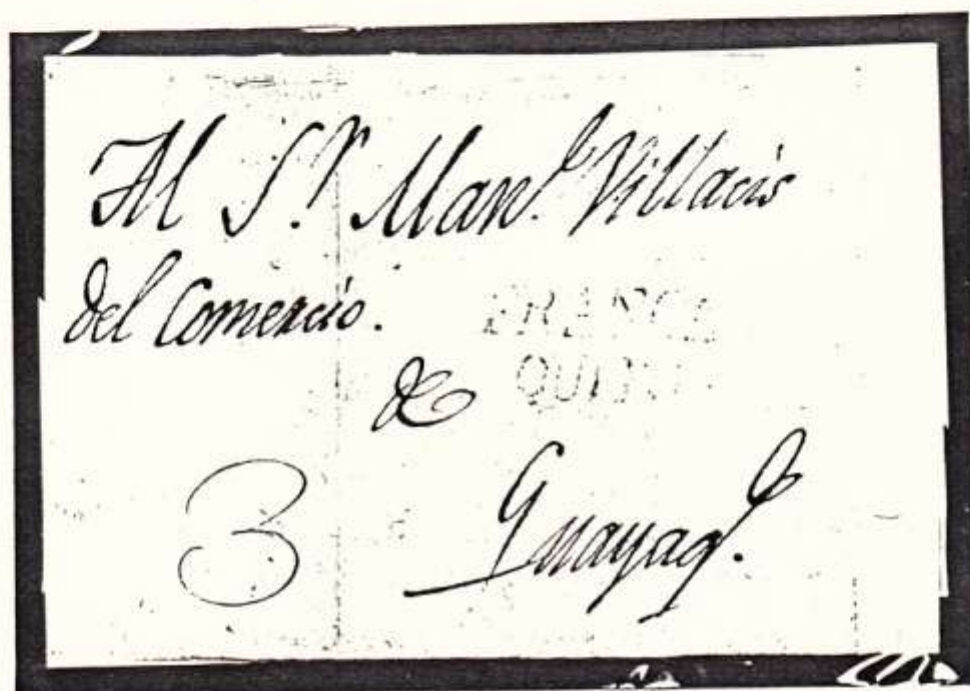 Al S.r Man.l Villacis
del Comercio.
FRANCA
de
3
Guayaq.l